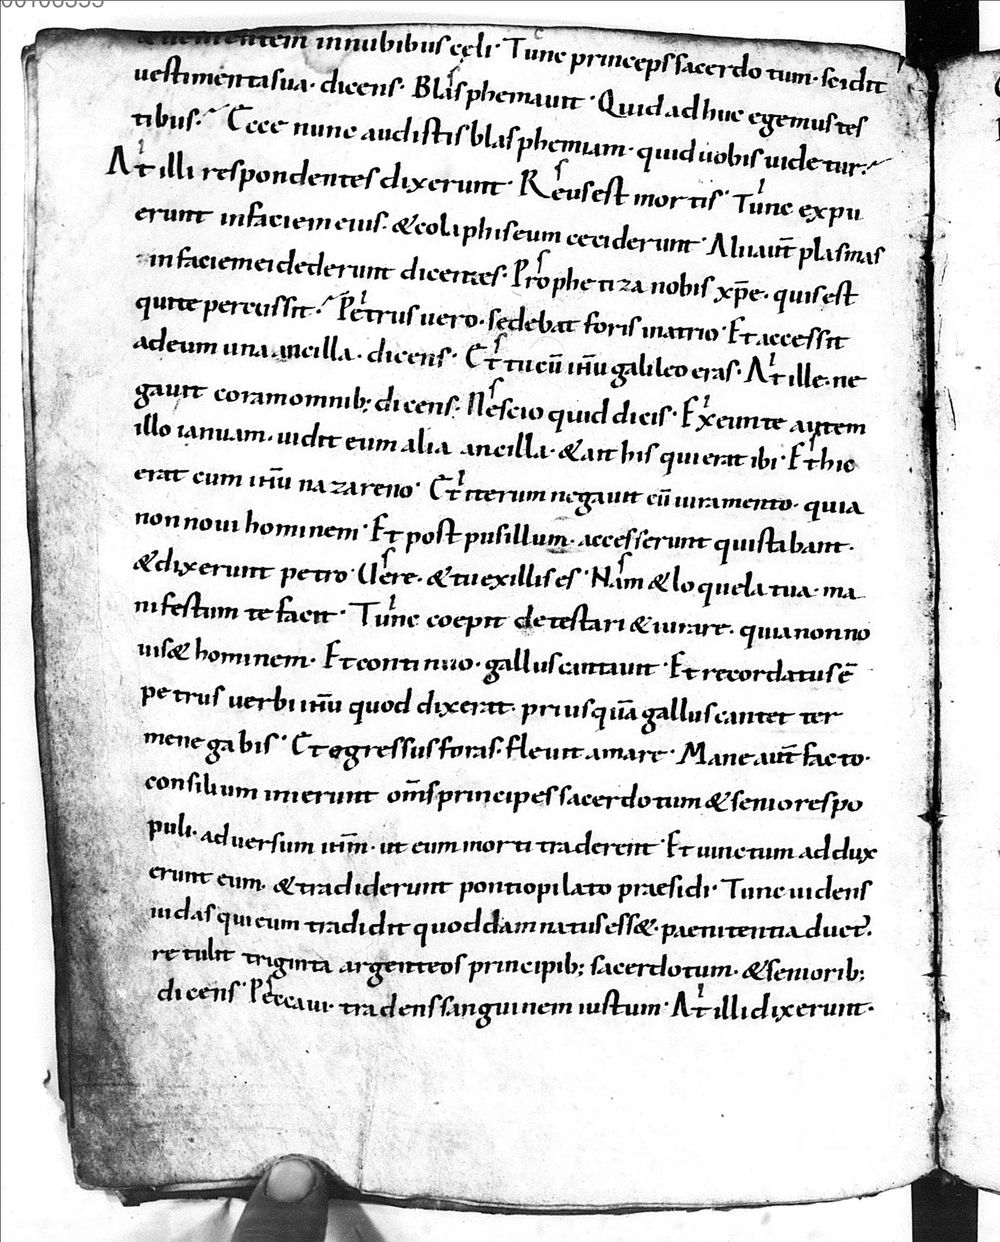 & uenientem innubibus cęli· Tunc princeps sacerdotum· scidit
uestimenta sua· dicens· Blasphemauit· Quid adhuc egemus tes
tibus· Ecce nunc audistis blasphemiam· quid uobis uidetur?
At illi respondentes dixerunt· Reus est mortis· Tunc expu
erunt infaciem eius· & colaphis eum ceciderunt· Alii aut̄ plasmas
infaciem ei dederunt dicentes· Prophetiza nobis xp̄e· quis est
qui te percussit· Petrus uero· sedebat foris in atrio· Et accessit
ad eum una ancilla· dicens· Et tu cū ih̄u galileo eras· At ille· ne
gauit coram omnib; dicens· Nescio quid dicis· Exeunte autem
illo ianuam· uidit eum alia ancilla· & ait his qui erat ibi· Et hic
erat cum ih̄u nazareno· Et iterum negauit cū iuramento· quia
non noui hominem· Et post pusillum· accesserunt qui stabant·
& dixerunt petro· Uere· & tu ex illis es· Nam & loquela tua· ma
nifestum te facit· Tunc coepit detestari & iurare· quia non no
uiss& hominem· Et continuo· gallus cantauit· Et recordatus ē
petrus uerbi ih̄u quod dixerat· priusquā gallus cantet ter
me negabis· Et egressus foras· fleuit amare· Mane aut̄ facto·
consilium inierunt om̄s principes sacerdotum & seniores po
puli· aduersum ih̄m· ut eum morti traderent· Et uinctum addux
erunt eum· & tradiderunt pontio pilato praesidi· Tunc uidens
iudas qui eum tradidit quod damnatus ess&· paenitentia duct᾿·
retulit triginta argenteos principib; sacerdotum· & seniorib;
dicens· Peccaui· tradens sanguinem iustum· At illi dixerunt·